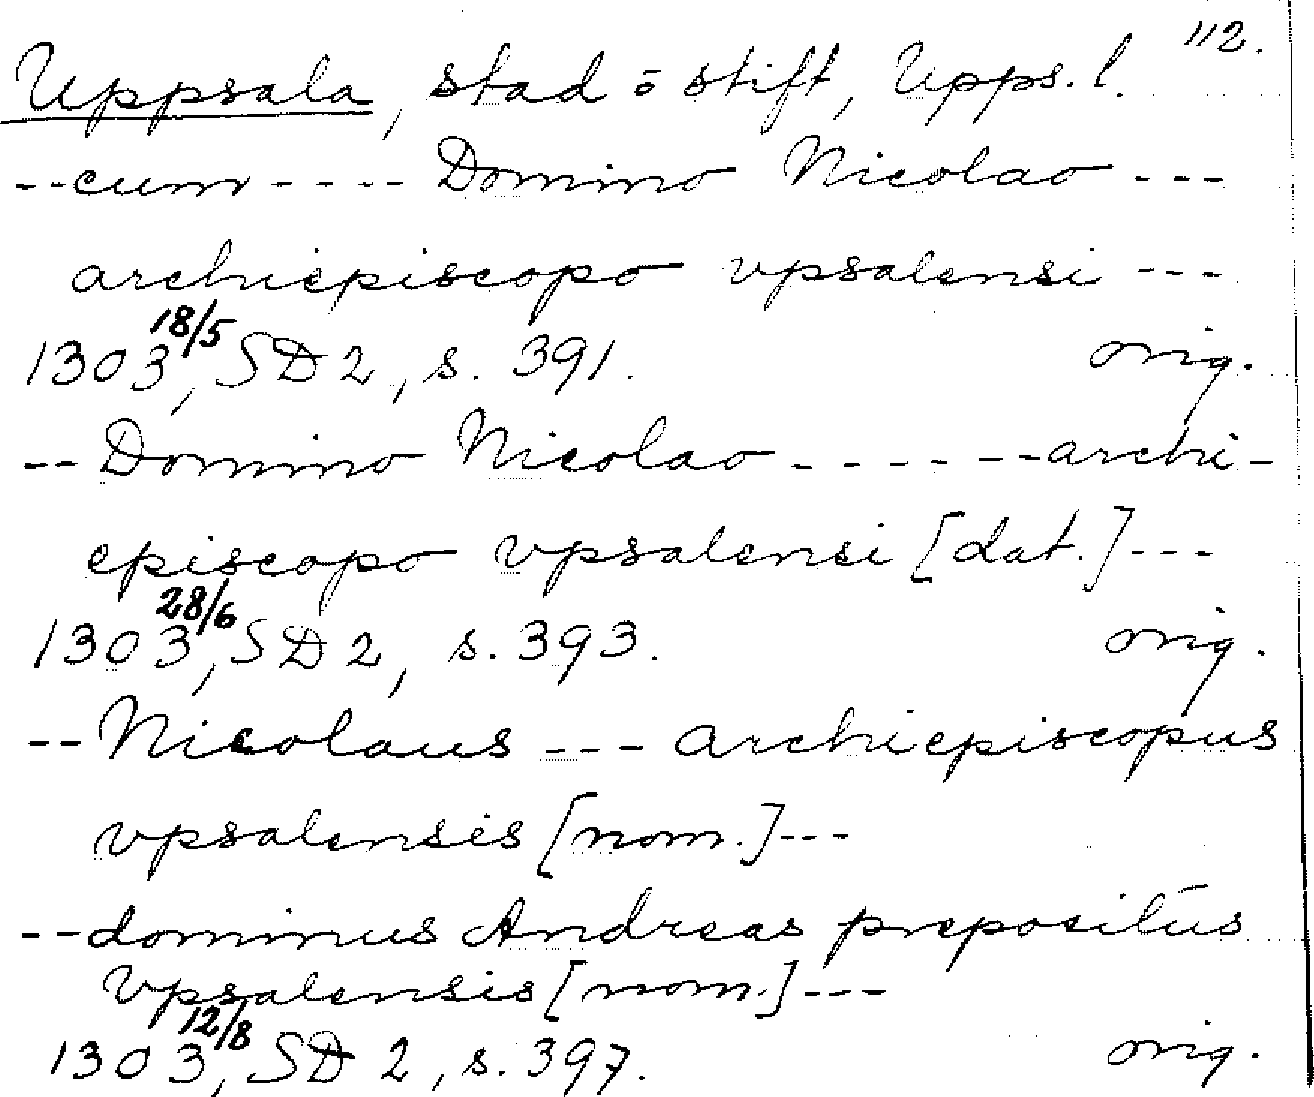 112.
Uppsala, stad o stift, Upps. l.
--cum---- Domino Nicolao ---
archiepiscopo vpsalensi ---
1303 18/5, SD 2, s. 391. orig.
-- Domino Nicolao ------- archi-
episcopo vpsalensi [dat.] ---
1303 28/6, SD 2, s. 393. orig.
-- Nicolaus --- archiepiscopus
vpsalensis [nom.] ---
-- dominus Andreas prepositus
Vpsalensis [nom.] ---
1303 12/8, SD 2, s. 397. orig.